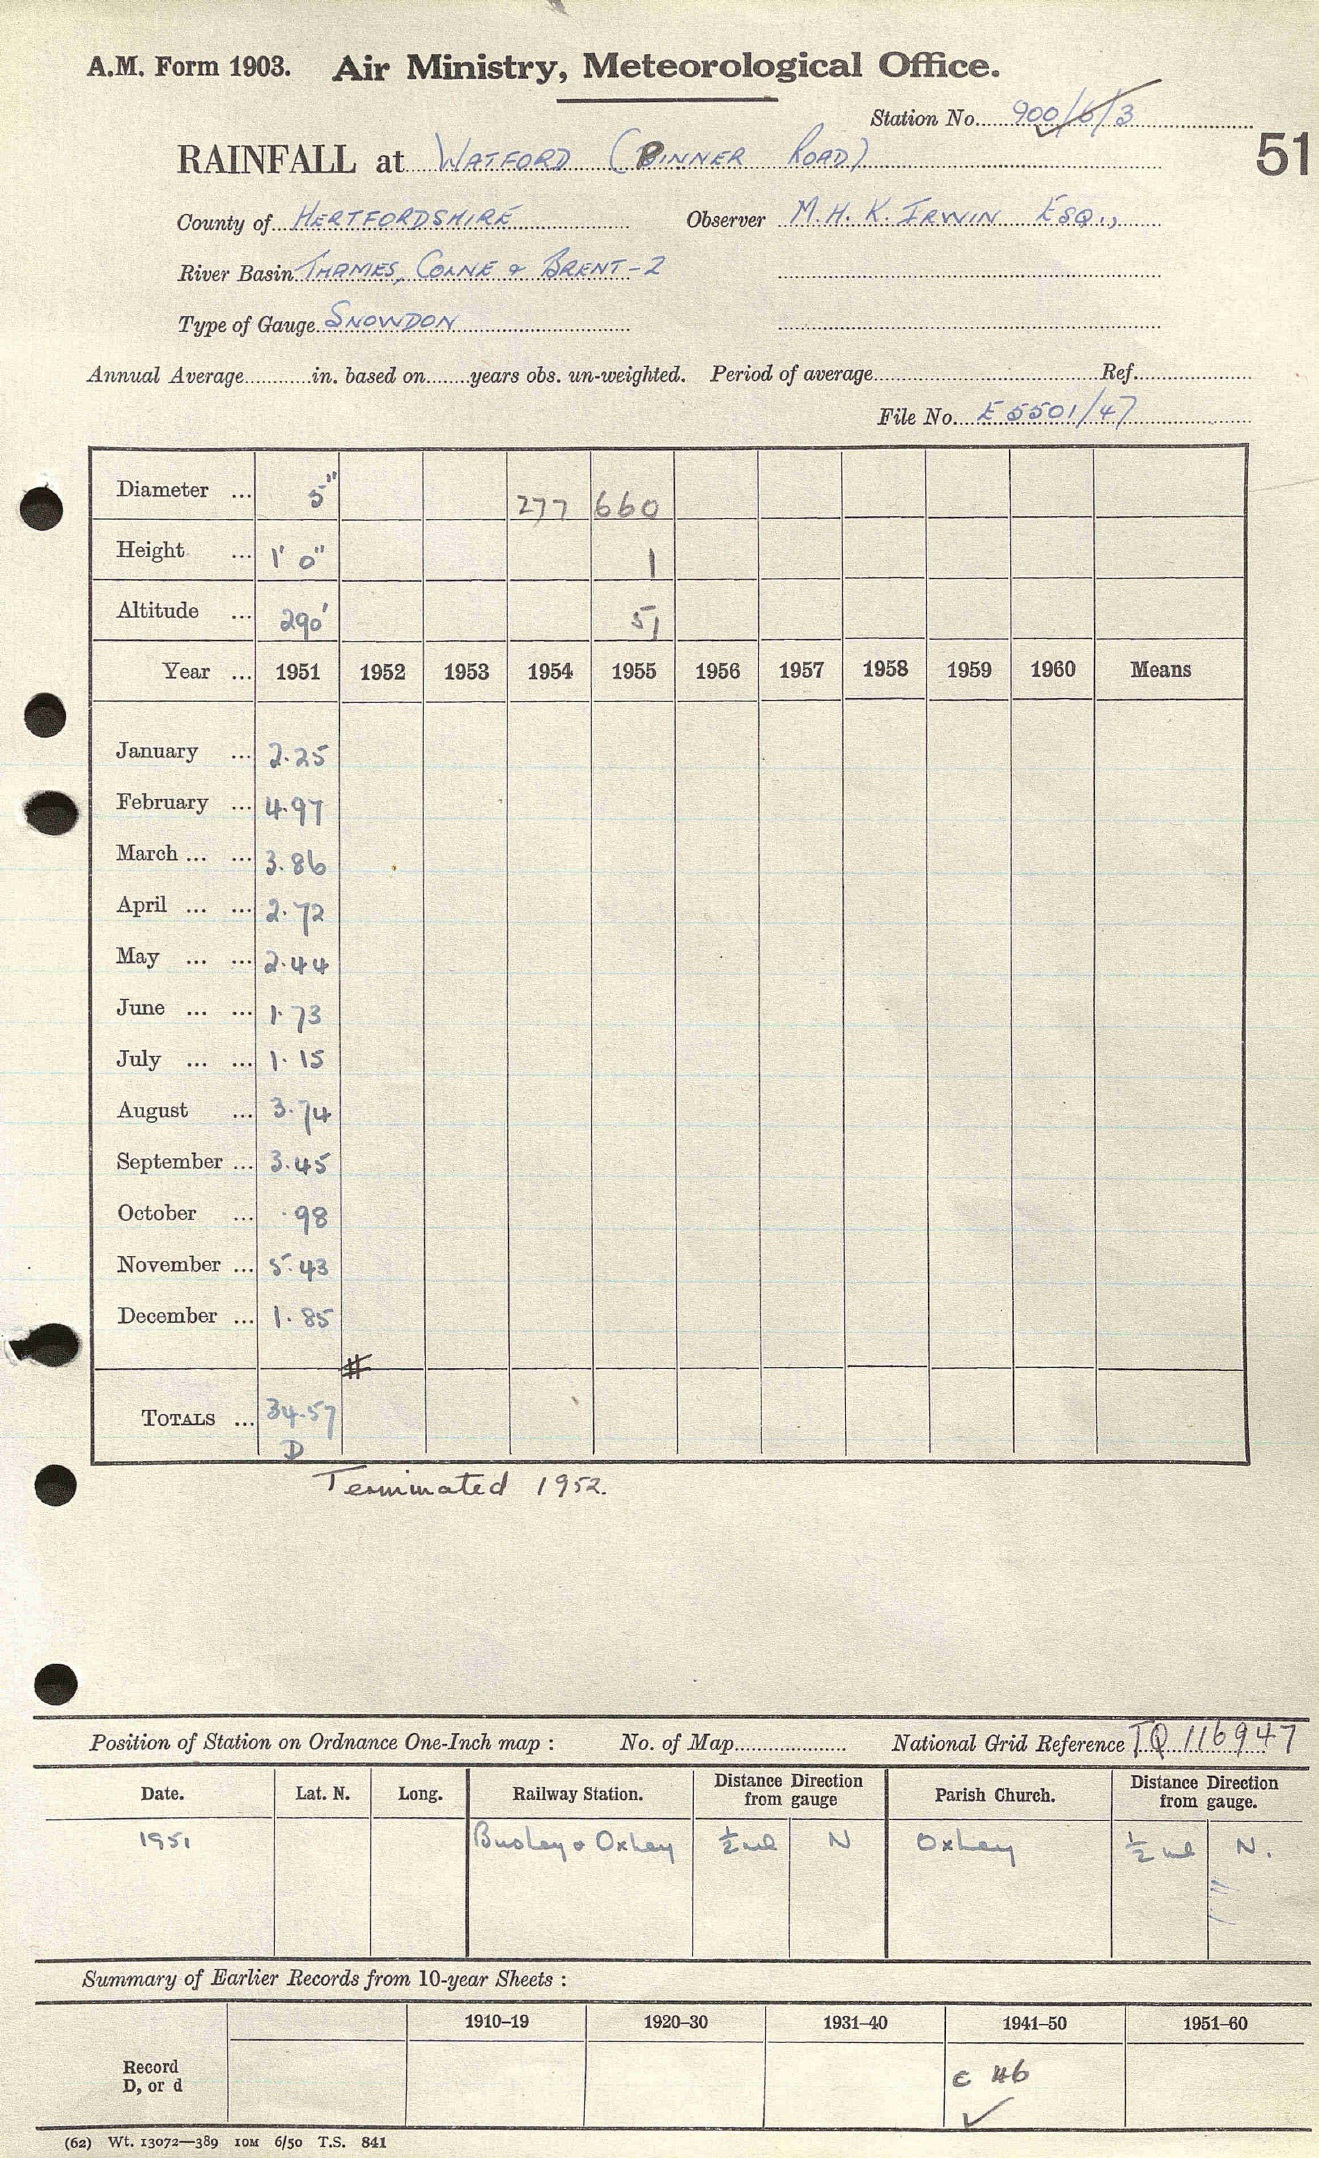 A.M. Form 1903. Air Ministry, Meteorological Office.
Station No. 900/6/3
51
RAINFALL at WATFORD (PINNER ROAD)
County of HERTFORDSHIRE Observer M.H.K. IRWIN ESQ.,
River Basin THAMES, COLNE & BRENT-2
Type of Gauge SNOWDON
Annual Average............in. based on........years obs. un-weighted. Period of average........................................Ref.....................
File No. E 5501/47
Diameter ... 5" 277 660
Height ... 1' 0" 1
Altitude ... 290' 51
Year ... 1951 1952 1953 1954 1955 1956 1957 1958 1959 1960 Means
January ... 2.25
February ... 4.97
March ... ... 3.86
April ... ... 2.72
May ... ... 2.44
June ... ... 1.73
July ... ... 1.15
August ... 3.74
September ... 3.45
October ... .98
November ... 5.43
December ... 1.85
#
TOTALS ... 34.57
D
Terminated 1952.
Position of Station on Ordnance One-Inch map : No. of Map.................... National Grid Reference TQ 116947
Date. Lat. N. Long. Railway Station. Distance Direction from gauge Parish Church. Distance Direction from gauge.
1951 Bushey & Oxhey ½ ml N Oxhey ½ ml N.
Summary of Earlier Records from 10-year Sheets :
1910–19 1920–30 1931–40 1941–50 1951–60
Record
D, or d
c 46
✓
(62) Wt. 13072—389 10M 6/50 T.S. 841